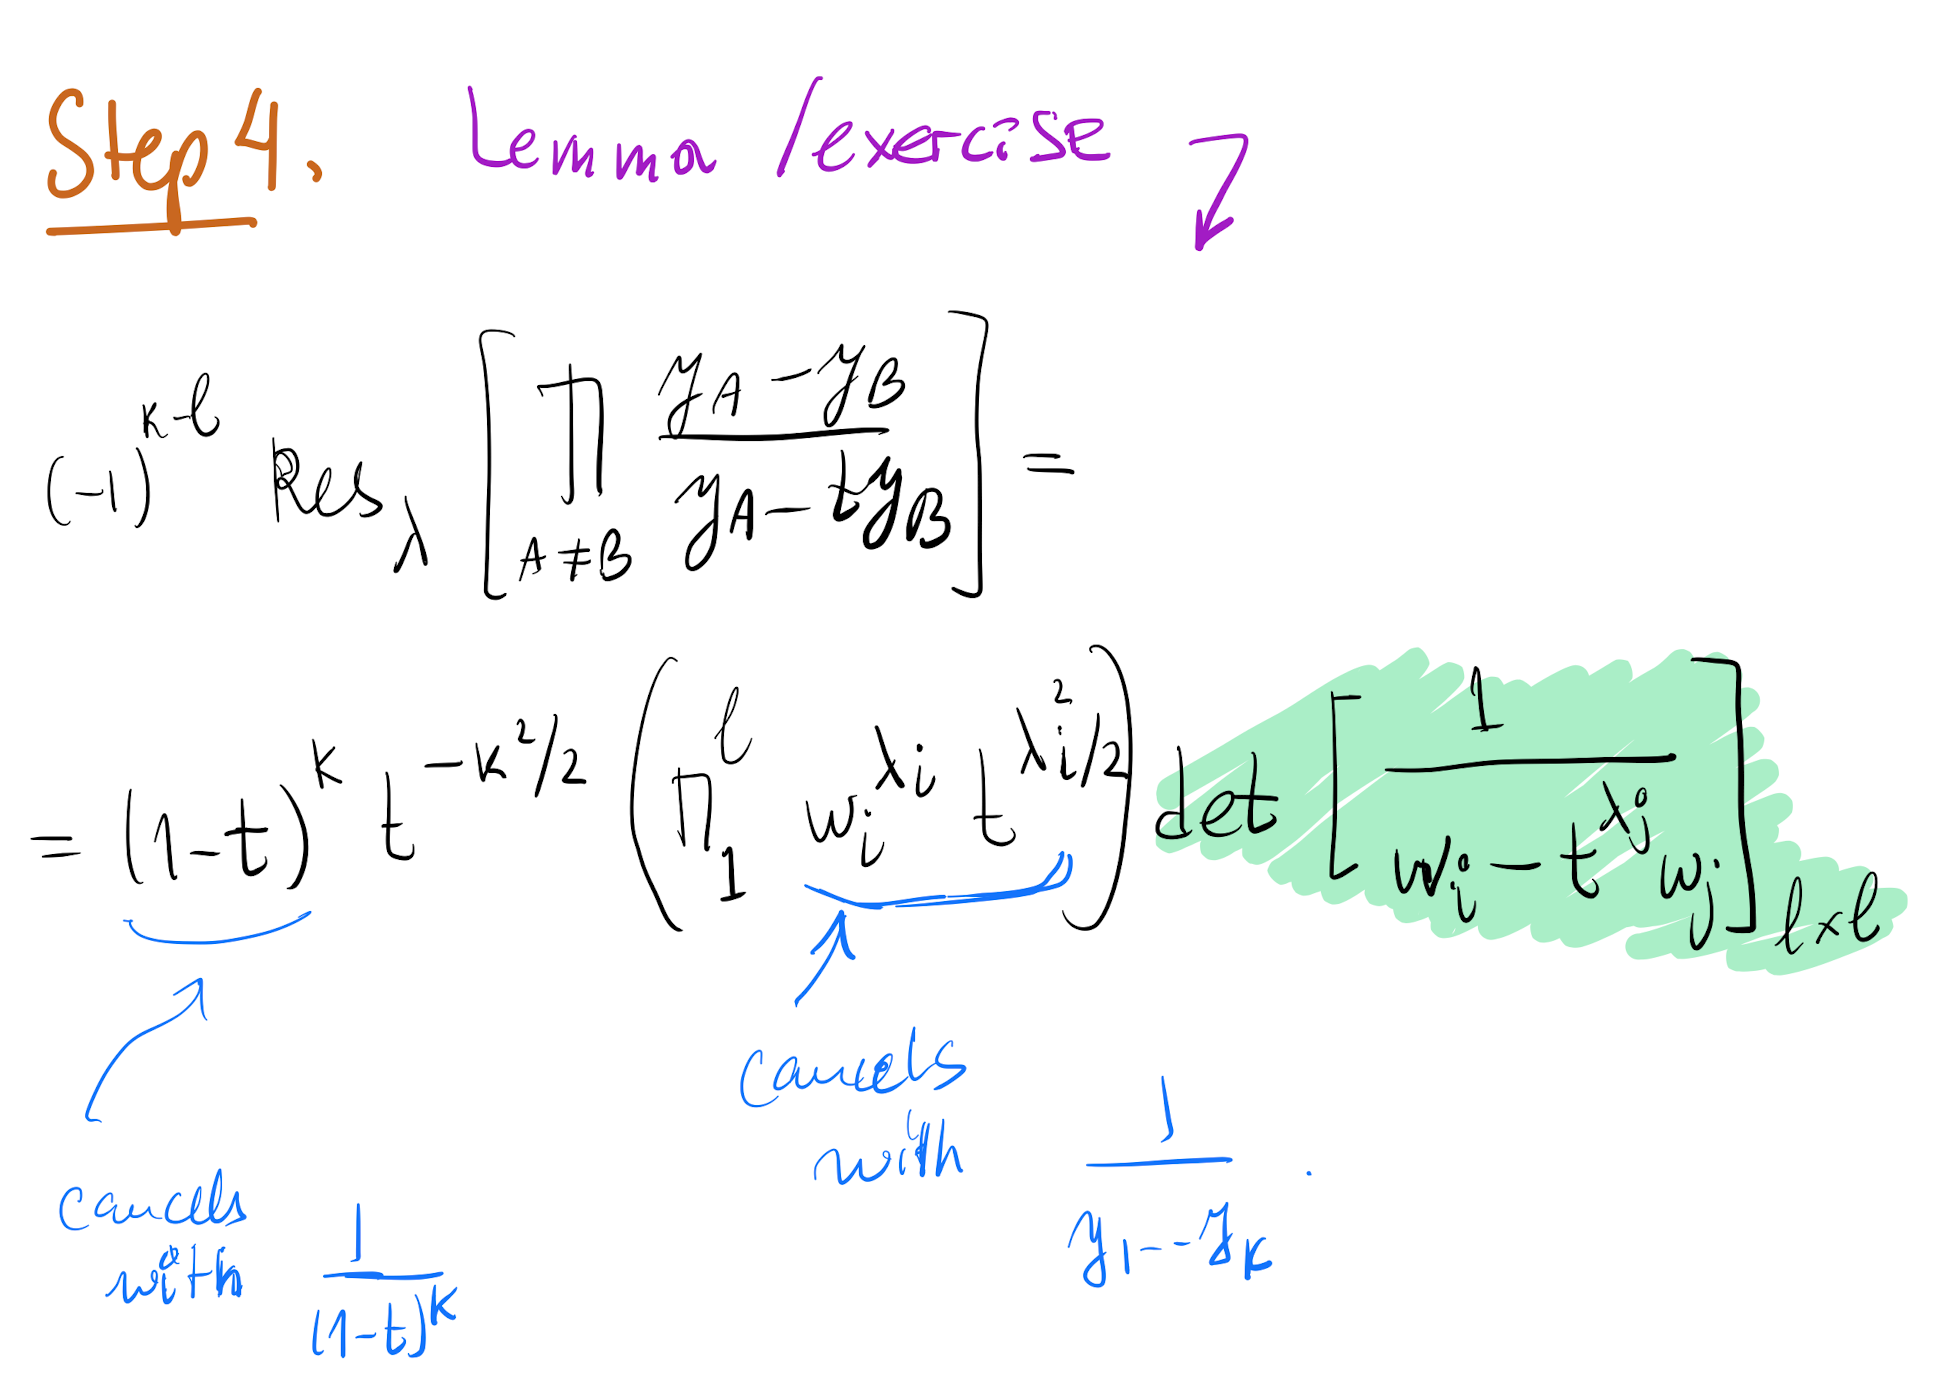 Step 4. Lemma /exercise
(-1)^{k-l} Res_λ [ ∏_{A≠B} \frac{y_A - y_B}{y_A - t y_B} ] =
= (1-t)^k t^{-k^2/2} ( ∏_1^l w_i^{λ_i} t^{λ_i^2/2} ) det [ \frac{1}{w_i - t^{λ_j} w_j} ]_{l×l}
cancels
with \frac{1}{y_1 -- y_k} .
cancels
with \frac{1}{(1-t)^k}